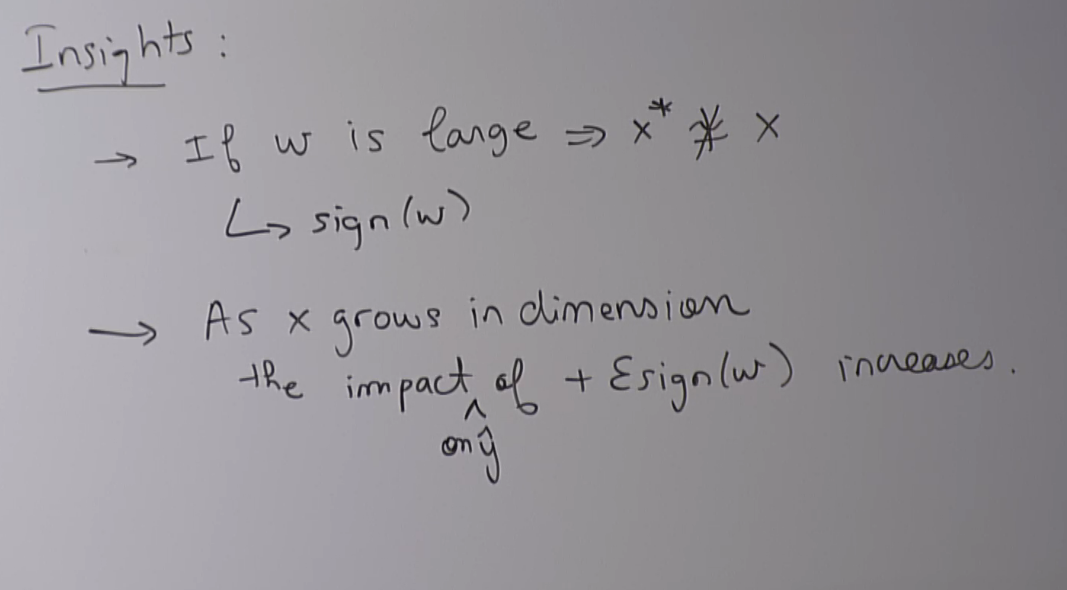 Insights :
→ If w is large ⇒ x* ≉ x
↳ sign(w)
→ As x grows in dimension
the impact ^ of + Ɛsign(w) increases.
on ŷ